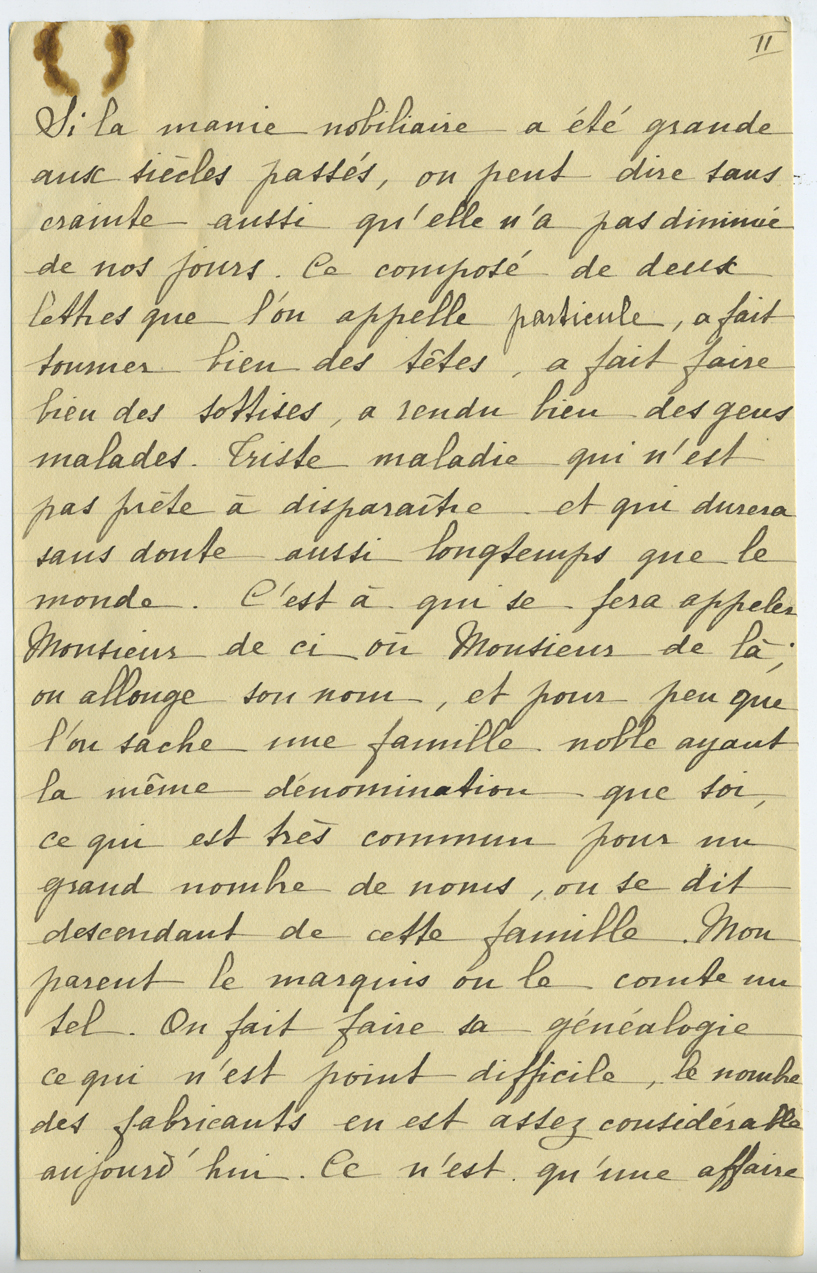 II
Si la manie nobiliaire a été grande
aux siècles passés, on peut dire sans
crainte aussi qu'elle n'a pas diminué
de nos jours. Ce composé de deux
lettres que l'on appelle particule, a fait
tourner bien des têtes, a fait faire
bien des sottises, a rendu bien des gens
malades. Triste maladie qui n'est
pas prète à disparaître et qui durera
sans doute aussi longtemps que le
monde. C'est à qui se fera appeler
Monsieur de ci ou Monsieur de là ;
on allonge son nom, et pour peu que
l'on sache une famille noble ayant
la même dénomination que soi,
ce qui est très commun pour un
grand nombre de noms, on se dit
descendant de cette famille. Mon
parent le marquis ou le comte un
tel. On fait faire sa généalogie
ce qui n'est point difficile, le nombre
des fabricants en est assez considérable
aujourd'hui. Ce n'est qu'une affaire